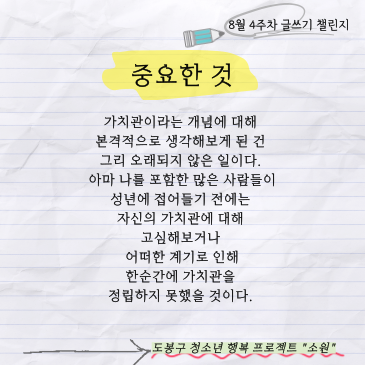 8월 4주차 글쓰기 챌린지
중요한 것
가치관이라는 개념에 대해
본격적으로 생각해보게 된 건
그리 오래되지 않은 일이다.
아마 나를 포함한 많은 사람들이
성년에 접어들기 전에는
자신의 가치관에 대해
고심해보거나
어떠한 계기로 인해
한순간에 가치관을
정립하지 못했을 것이다.
도봉구 청소년 행복 프로젝트 "소원"